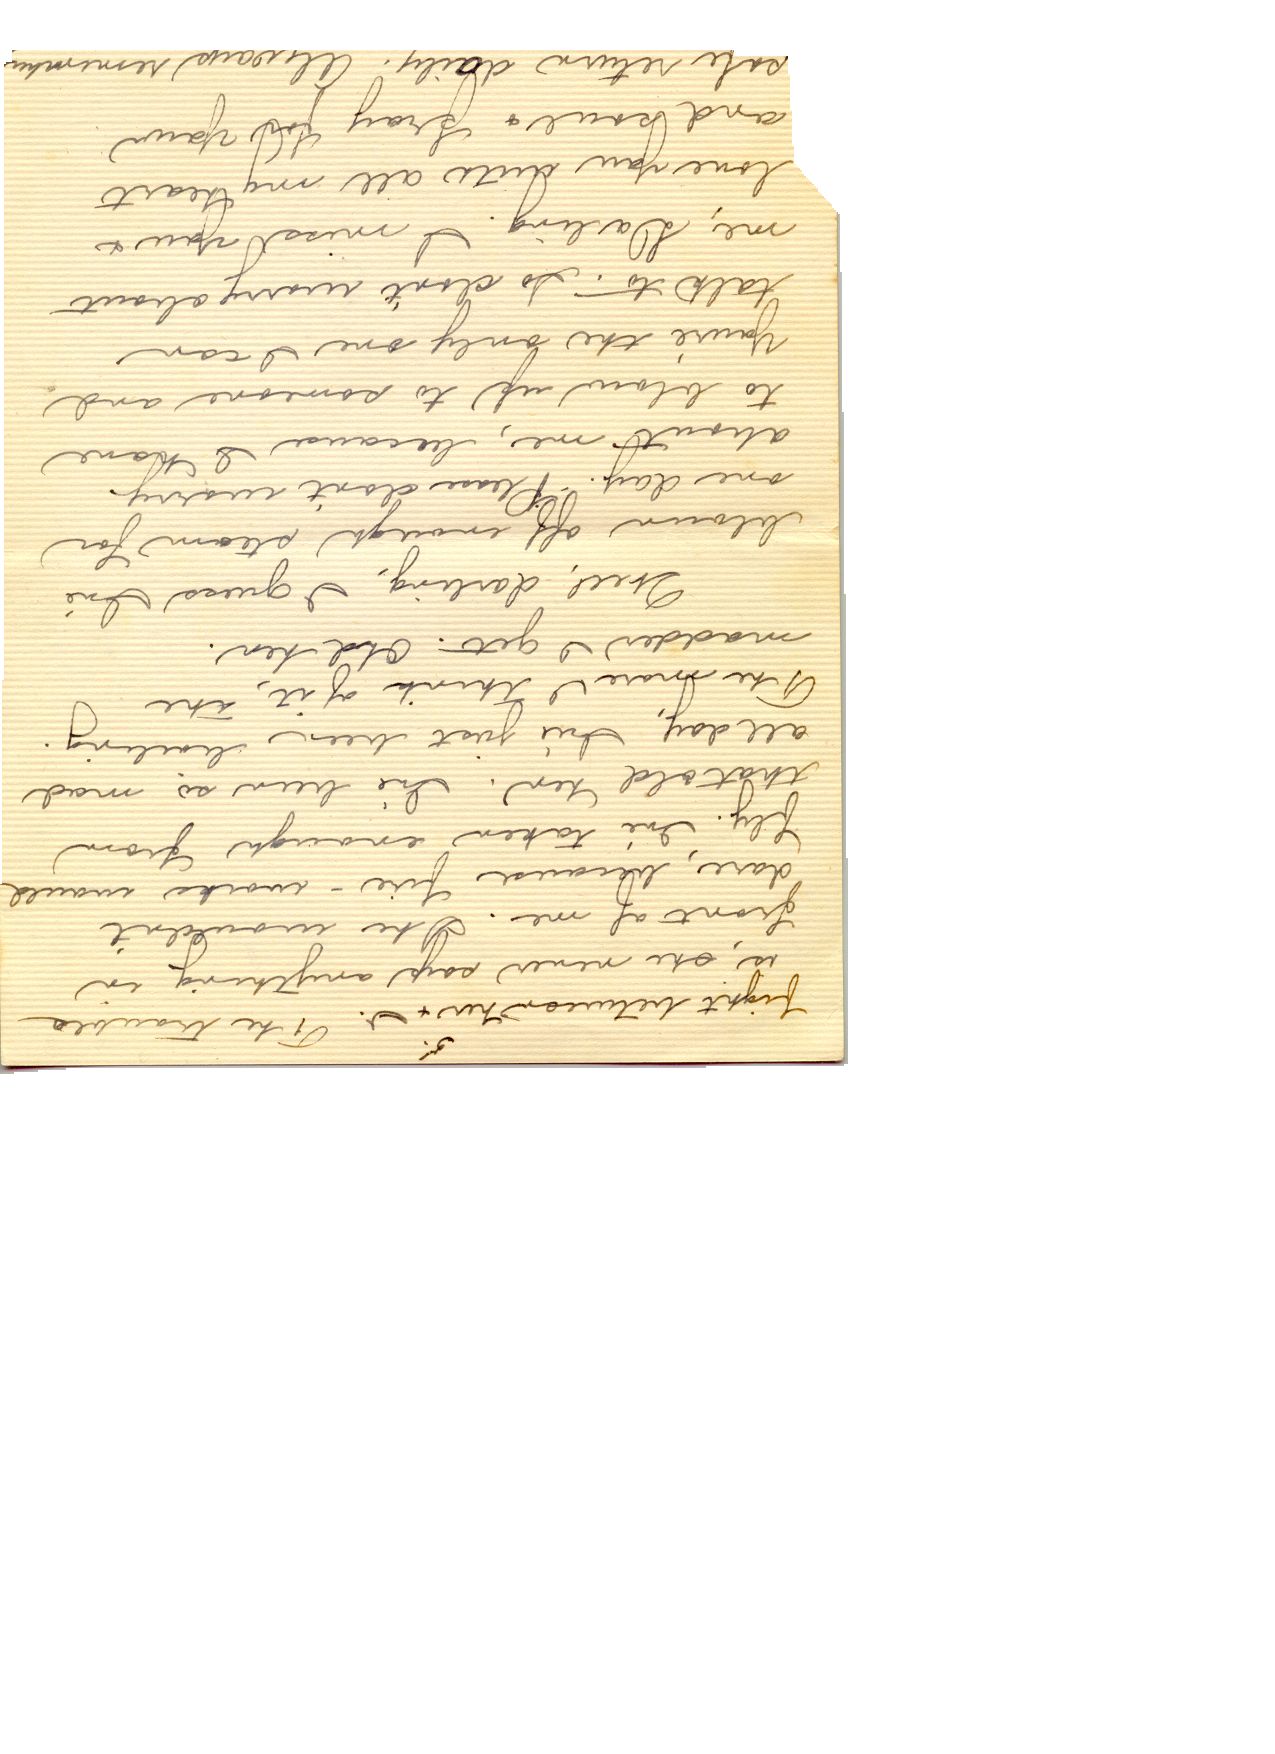 5.
fight between her + I. The trouble
is, she never says anything in
front of me. She wouldn't
dare, because fire-works would
fly. I've taken enough from
that old hen. I've been so mad
all day, I've just been boiling.
The more I think of it, the
madder I get. Old hen.
Well, darling, I guess I've
blown off enough steam for
one day. Please don't worry
about me, because I have
to blow up to someone and
you're the only one I can
talk to. So don't worry about
me, Darling. I miss you +
love you with all my heart
and soul + pray for your
safe return daily. Always remember